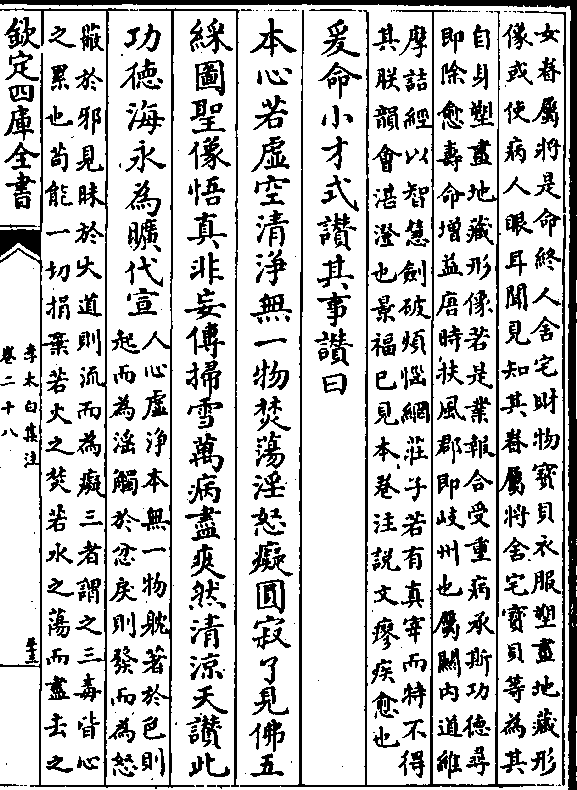 女眷屬將是命終人舍宅財物寳貝衣服塑畫地藏形
像或使病人眼耳聞見知其眷屬將舍宅寳貝等為其
自身塑畫地藏形像若是業報合受重病承斯功德尋
即除愈壽命增益唐時扶風郡即岐州也屬關内道維
摩詰經以智慧劍破煩惱網莊子若有真宰而特不得
其朕韻會湛澄也景福已見本卷注説文瘳疾愈也
爰命小才式讃其事讃曰
本心若虚空清淨無一物焚蕩淫怒癡圓寂了見佛五
綵圖聖像悟真非妄傳掃雪萬病盡爽然清涼天讃此
功德海永為曠代宣
人心虚淨本無一物躭著於色則
起而為淫觸於忿戾則發而為怒
蔽於邪見昧於大道則流而為癡三者謂之三毒皆心
之累也苟能一切捐棄若火之焚若水之蕩而盡去之
欽定四庫全書
李太白集注
卷二十八